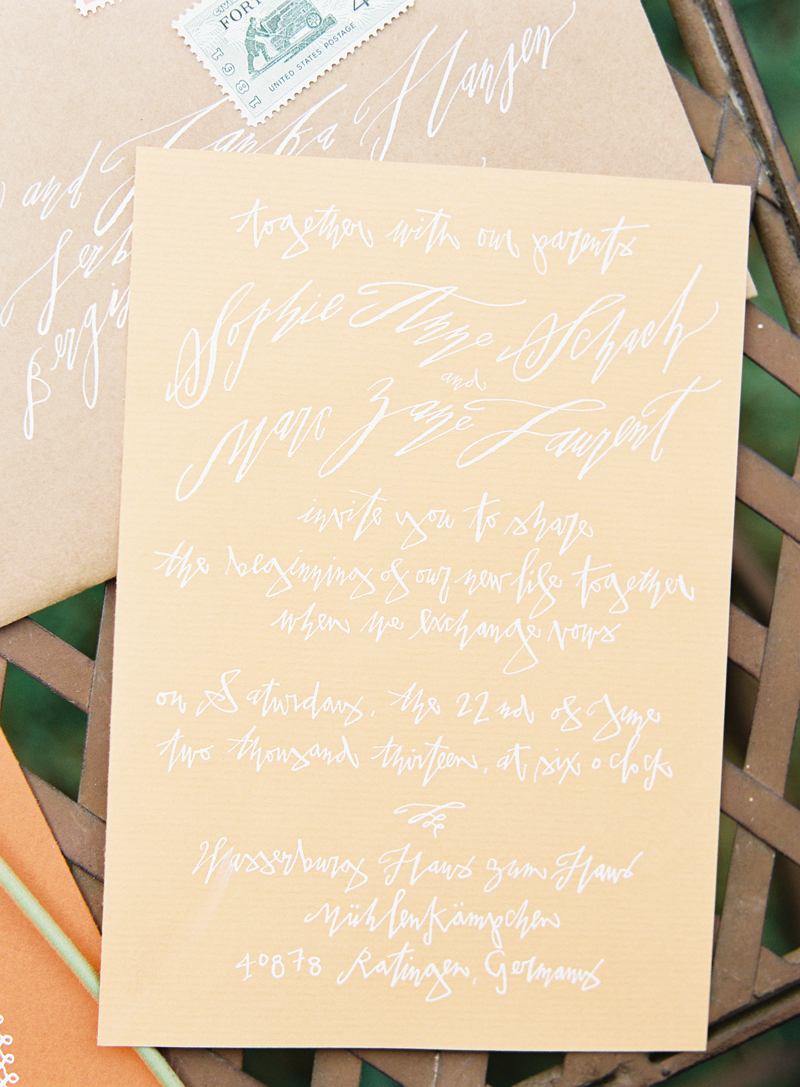 FORT
4
UNITED STATES POSTAGE
1981
and Hansen
together with our parents
Sophie Anne Schach
and
Marc Zane Laurent
invite you to share
the beginning of our new life together
when we exchange vows
on Saturday, the 22nd of June
two thousand thirteen, at six o clock
Wasserburg Haus zum Haus
Mühlenkämpchen
40878 Ratingen, Germany